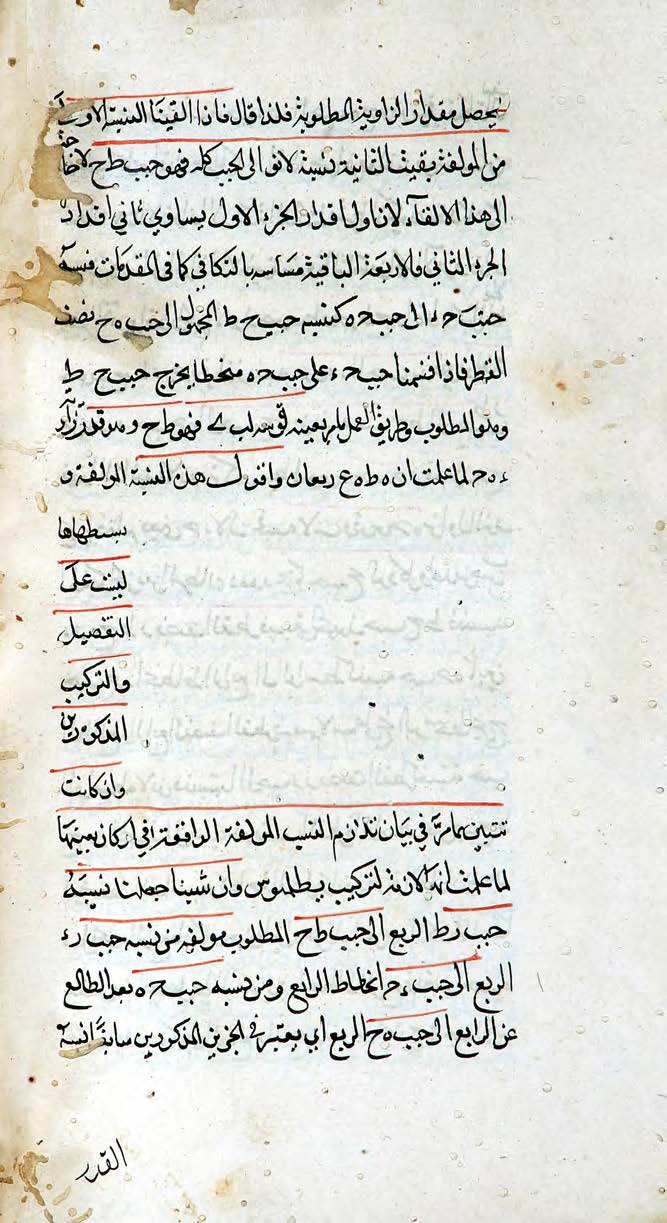 يحصل مقدار الزاوية المطلوبة فلذا قال فاذا القينا النسبة الاولى
من المولفة بقيت الثانية نسبة لانو الى الجيب كله فهو جيب ط ح لا حاجة
الى هذا الالقاء لان اول اقدار الجزء الاول يساوي ثاني اقدار
الجزء الثاني فالاربعة الباقية متناسبة بالتكافي كما في المقدمات فنسبة
جيب ح ء الى جيب ح ه كنسبة جيب ح ط المجهول الى جيب ه ح نصف
القطر فاذا قسمنا جيب ح ء على جيب ح ه منحطا يخرج جيب ح ط
وهو المطلوب وطريق العمل ما مر بعينه قوسه لب ے فهو ط ح وهو قدر زاوية
ء ه ح لما علمت ان ه ط ه ع ربعان واقول هذه النسبة المولفة و
بسطها ها
ليست على
التفصيل
والتركيب
المذكورين
وان كانت
تتبين بما مر في بيان تلازم النسب المولفة الواقعة في اركان بعينها
لما علمت انه لازمة لتركيب بطلميوس وان شينا جعلنا نسبة
جيب ر ط الربع الى جيب ط ح المطلوب مولفة من نسبة جيب ر ء
الربع الى جيب ء ح انحطاط الرابع ومن نسبة جيب ح ه بعد الطالع
عن الرابع الى جيب ه ح الربع اي يعتبر في الجزين المذكورين سابقا نسبة
القدر